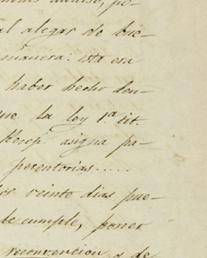 al alegar de bie-
manera: esta era
haber hecho den-
que la ley 1.ª tit.
Recop. asigna pa-
perentorias.....
los veinte dias pue-
de cumple, poner
reconvencion a de